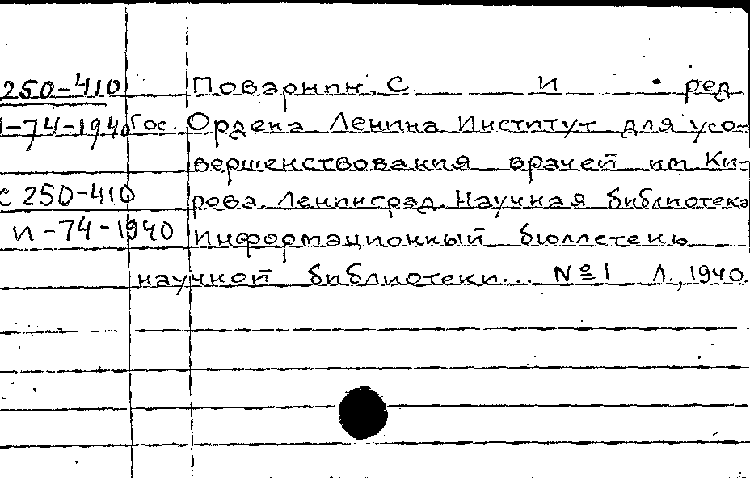 250-410 Поварнин С И ред
И-74-1940 Гос. Ордена Ленина Институт для усо-
вершенствования врачей им Ки-
С 250-410 рова. Ленинград. Научная библиотека
И-74-1940 Информационный бюллетень
научной библиотеки... №1 Л., 1940.